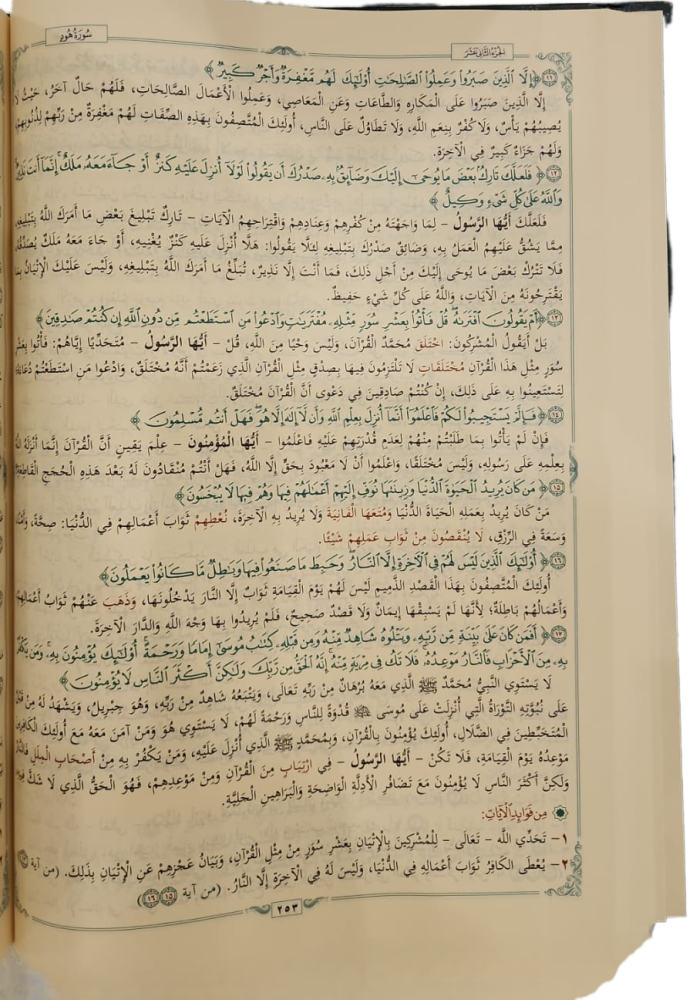 سُورَةُ هُودٍ
الجُزءُ الثَّانِي عَشَرَ
﴿١١﴾ ﴿إِلَّا ٱلَّذِينَ صَبَرُوا۟ وَعَمِلُوا۟ ٱلصَّـٰلِحَـٰتِ أُو۟لَـٰٓئِكَ لَهُم مَّغْفِرَةٌ وَأَجْرٌ كَبِيرٌ﴾
إِلَّا الَّذِينَ صَبَرُوا عَلَى الْمَكَارِهِ وَالطَّاعَاتِ وَعَنِ الْمَعَاصِي، وَعَمِلُوا الْأَعْمَالَ الصَّالِحَاتِ، فَلَهُمْ حَالٌ آخَرُ، حَيْثُ لَا
يُصِيبُهُمْ يَأْسٌ، وَلَا كُفْرٌ بِنِعَمِ اللَّهِ، وَلَا تَطَاوُلٌ عَلَى النَّاسِ، أُولَئِكَ الْمُتَّصِفُونَ بِهَذِهِ الصِّفَاتِ لَهُمْ مَغْفِرَةٌ مِنْ رَبِّهِمْ لِذُنُوبِهِمْ،
وَلَهُمْ جَزَاءٌ كَبِيرٌ فِي الْآخِرَةِ.
﴿١٢﴾ ﴿فَلَعَلَّكَ تَارِكٌۢ بَعْضَ مَا يُوحَىٰٓ إِلَيْكَ وَضَآئِقٌۢ بِهِۦ صَدْرُكَ أَن يَقُولُوا۟ لَوْلَآ أُنزِلَ عَلَيْهِ كَنزٌ أَوْ جَآءَ مَعَهُۥ مَلَكٌ إِنَّمَآ أَنتَ نَذِيرٌ
وَٱللَّهُ عَلَىٰ كُلِّ شَىْءٍ وَكِيلٌ﴾
فَلَعَلَّكَ أَيُّهَا الرَّسُولُ - لِمَا وَاجَهْتَهُ مِنْ كُفْرِهِمْ وَعِنَادِهِمْ وَاقْتِرَاحِهِمُ الْآيَاتِ - تَارِكٌ تَبْلِيغَ بَعْضِ مَا أَمَرَكَ اللَّهُ بِتَبْلِيغِهِ
مِمَّا يَشُقُّ عَلَيْهِمُ الْعَمَلُ بِهِ، وَضَائِقٌ صَدْرُكَ بِتَبْلِيغِهِ لِئَلَّا يَقُولُوا: هَلَّا أُنْزِلَ عَلَيْهِ كَنْزٌ يُغْنِيهِ، أَوْ جَاءَ مَعَهُ مَلَكٌ يُصَدِّقُهُ،
فَلَا تَتْرُكْ بَعْضَ مَا يُوحَى إِلَيْكَ مِنْ أَجْلِ ذَلِكَ، فَمَا أَنْتَ إِلَّا نَذِيرٌ، تُبَلِّغُ مَا أَمَرَكَ اللَّهُ بِتَبْلِيغِهِ، وَلَيْسَ عَلَيْكَ الْإِتْيَانُ بِمَا
يَقْتَرِحُونَهُ مِنَ الْآيَاتِ، وَاللَّهُ عَلَى كُلِّ شَيْءٍ حَفِيظٌ.
﴿١٣﴾ ﴿أَمْ يَقُولُونَ ٱفْتَرَىٰهُ قُلْ فَأْتُوا۟ بِعَشْرِ سُوَرٍ مِّثْلِهِۦ مُفْتَرَيَـٰتٍ وَٱدْعُوا۟ مَنِ ٱسْتَطَعْتُم مِّن دُونِ ٱللَّهِ إِن كُنتُمْ صَـٰدِقِينَ﴾
بَلْ أَيَقُولُ الْمُشْرِكُونَ: اخْتَلَقَ مُحَمَّدٌ الْقُرْآنَ، وَلَيْسَ وَحْيًا مِنَ اللَّهِ، قُلْ - أَيُّهَا الرَّسُولُ - مُتَحَدِّيًا إِيَّاهُمْ: فَأْتُوا بِعَشْرِ
سُوَرٍ مِثْلِ هَذَا الْقُرْآنِ مُخْتَلَقَاتٍ لَا تَلْتَزِمُونَ فِيهَا بِصِدْقٍ مِثْلِ الْقُرْآنِ الَّذِي زَعَمْتُمْ أَنَّهُ مُخْتَلَقٌ، وَادْعُوا مَنِ اسْتَطَعْتُمْ دُعَاءَهُ
لِتَسْتَعِينُوا بِهِ عَلَى ذَلِكَ، إِنْ كُنْتُمْ صَادِقِينَ فِي دَعْوَى أَنَّ الْقُرْآنَ مُخْتَلَقٌ.
﴿١٤﴾ ﴿فَإِلَّمْ يَسْتَجِيبُوا۟ لَكُمْ فَٱعْلَمُوٓا۟ أَنَّمَآ أُنزِلَ بِعِلْمِ ٱللَّهِ وَأَن لَّآ إِلَـٰهَ إِلَّا هُوَ فَهَلْ أَنتُم مُّسْلِمُونَ﴾
فَإِنْ لَمْ يَأْتُوا بِمَا طَلَبْتُمْ مِنْهُمْ لِعَدَمِ قُدْرَتِهِمْ عَلَيْهِ فَاعْلَمُوا - أَيُّهَا الْمُؤْمِنُونَ - عِلْمَ يَقِينٍ أَنَّ الْقُرْآنَ إِنَّمَا أَنْزَلَهُ اللَّهُ
بِعِلْمِهِ عَلَى رَسُولِهِ، وَلَيْسَ مُخْتَلَقًا، وَاعْلَمُوا أَنْ لَا مَعْبُودَ بِحَقٍّ إِلَّا اللَّهُ، فَهَلْ أَنْتُمْ مُنْقَادُونَ لَهُ بَعْدَ هَذِهِ الْحُجَجِ الْقَاطِعَةِ؟
﴿١٥﴾ ﴿مَن كَانَ يُرِيدُ ٱلْحَيَوٰةَ ٱلدُّنْيَا وَزِينَتَهَا نُوَفِّ إِلَيْهِمْ أَعْمَـٰلَهُمْ فِيهَا وَهُمْ فِيهَا لَا يُبْخَسُونَ﴾
مَنْ كَانَ يُرِيدُ بِعَمَلِهِ الْحَيَاةَ الدُّنْيَا وَمُتَعَهَا الْفَانِيَةَ وَلَا يُرِيدُ بِهِ الْآخِرَةَ، نُعْطِهِمْ ثَوَابَ أَعْمَالِهِمْ فِي الدُّنْيَا: صِحَّةً، وَأَمْنًا،
وَسَعَةً فِي الرِّزْقِ، لَا يُنْقَصُونَ مِنْ ثَوَابِ عَمَلِهِمْ شَيْئًا.
﴿١٦﴾ ﴿أُو۟لَـٰٓئِكَ ٱلَّذِينَ لَيْسَ لَهُمْ فِى ٱلْـَٔاخِرَةِ إِلَّا ٱلنَّارُ وَحَبِطَ مَا صَنَعُوا۟ فِيهَا وَبَـٰطِلٌ مَّا كَانُوا۟ يَعْمَلُونَ﴾
أُولَئِكَ الْمُتَّصِفُونَ بِهَذَا الْقَصْدِ الذَّمِيمِ لَيْسَ لَهُمْ يَوْمَ الْقِيَامَةِ ثَوَابٌ إِلَّا النَّارَ يَدْخُلُونَهَا، وَذَهَبَ عَنْهُمْ ثَوَابُ أَعْمَالِهِمْ،
وَأَعْمَالُهُمْ بَاطِلَةٌ؛ لِأَنَّهَا لَمْ يَسْبِقْهَا إِيمَانٌ وَلَا قَصْدٌ صَحِيحٌ، فَلَمْ يُرِيدُوا بِهَا وَجْهَ اللَّهِ وَالدَّارَ الْآخِرَةَ.
﴿١٧﴾ ﴿أَفَمَن كَانَ عَلَىٰ بَيِّنَةٍ مِّن رَّبِّهِۦ وَيَتْلُوهُ شَاهِدٌ مِّنْهُ وَمِن قَبْلِهِۦ كِتَـٰبُ مُوسَىٰٓ إِمَامًا وَرَحْمَةً أُو۟لَـٰٓئِكَ يُؤْمِنُونَ بِهِۦ وَمَن يَكْفُرْ
بِهِۦ مِنَ ٱلْأَحْزَابِ فَٱلنَّارُ مَوْعِدُهُۥ فَلَا تَكُ فِى مِرْيَةٍ مِّنْهُ إِنَّهُ ٱلْحَقُّ مِن رَّبِّكَ وَلَـٰكِنَّ أَكْثَرَ ٱلنَّاسِ لَا يُؤْمِنُونَ﴾
لَا يَسْتَوِي النَّبِيُّ مُحَمَّدٌ ﷺ الَّذِي مَعَهُ بُرْهَانٌ مِنْ رَبِّهِ تَعَالَى، وَيَتْبَعُهُ شَاهِدٌ مِنْ رَبِّهِ، وَهُوَ جِبْرِيلُ، وَيَشْهَدُ لَهُ مِنْ قَبْلُ
عَلَى نُبُوَّتِهِ التَّوْرَاةُ الَّتِي أُنْزِلَتْ عَلَى مُوسَى ﷺ قُدْوَةً لِلنَّاسِ وَرَحْمَةً لَهُمْ، لَا يَسْتَوِي هُوَ وَمَنْ آمَنَ مَعَهُ مَعَ أُولَئِكَ الْكَافِرِينَ
الْمُتَخَبِّطِينَ فِي الضَّلَالِ، أُولَئِكَ يُؤْمِنُونَ بِالْقُرْآنِ، وَبِمُحَمَّدٍ ﷺ الَّذِي أُنْزِلَ عَلَيْهِ، وَمَنْ يَكْفُرْ بِهِ مِنْ أَصْحَابِ الْمِلَلِ فَالنَّارُ
مَوْعِدُهُ يَوْمَ الْقِيَامَةِ، فَلَا تَكُنْ - أَيُّهَا الرَّسُولُ - فِي ارْتِيَابٍ مِنَ الْقُرْآنِ وَمِنْ مَوْعِدِهِمْ، فَهُوَ الْحَقُّ الَّذِي لَا شَكَّ فِيهِ،
وَلَكِنَّ أَكْثَرَ النَّاسِ لَا يُؤْمِنُونَ مَعَ تَضَافُرِ الْأَدِلَّةِ الْوَاضِحَةِ وَالْبَرَاهِينِ الْجَلِيَّةِ.
مِن فَوَائِدِ الْآيَاتِ:
١- تَحَدِّي اللَّه - تَعَالَى - لِلْمُشْرِكِينَ بِالْإِتْيَانِ بِعَشْرِ سُوَرٍ مِنْ مِثْلِ الْقُرْآنِ، وَبَيَانُ عَجْزِهِمْ عَنِ الْإِتْيَانِ بِذَلِكَ. (من آية
٢- يُعْطَى الْكَافِرُ ثَوَابَ أَعْمَالِهِ فِي الدُّنْيَا، وَلَيْسَ لَهُ فِي الْآخِرَةِ إِلَّا النَّارُ. (من آية ١٥ ١٦)
٢٥٣